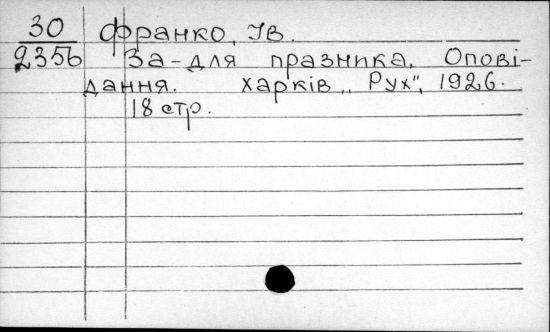 30 Франко, Ів.
2356 За-для празника. Опові-
дання. Харків „Рух", 1926.
18 стр.